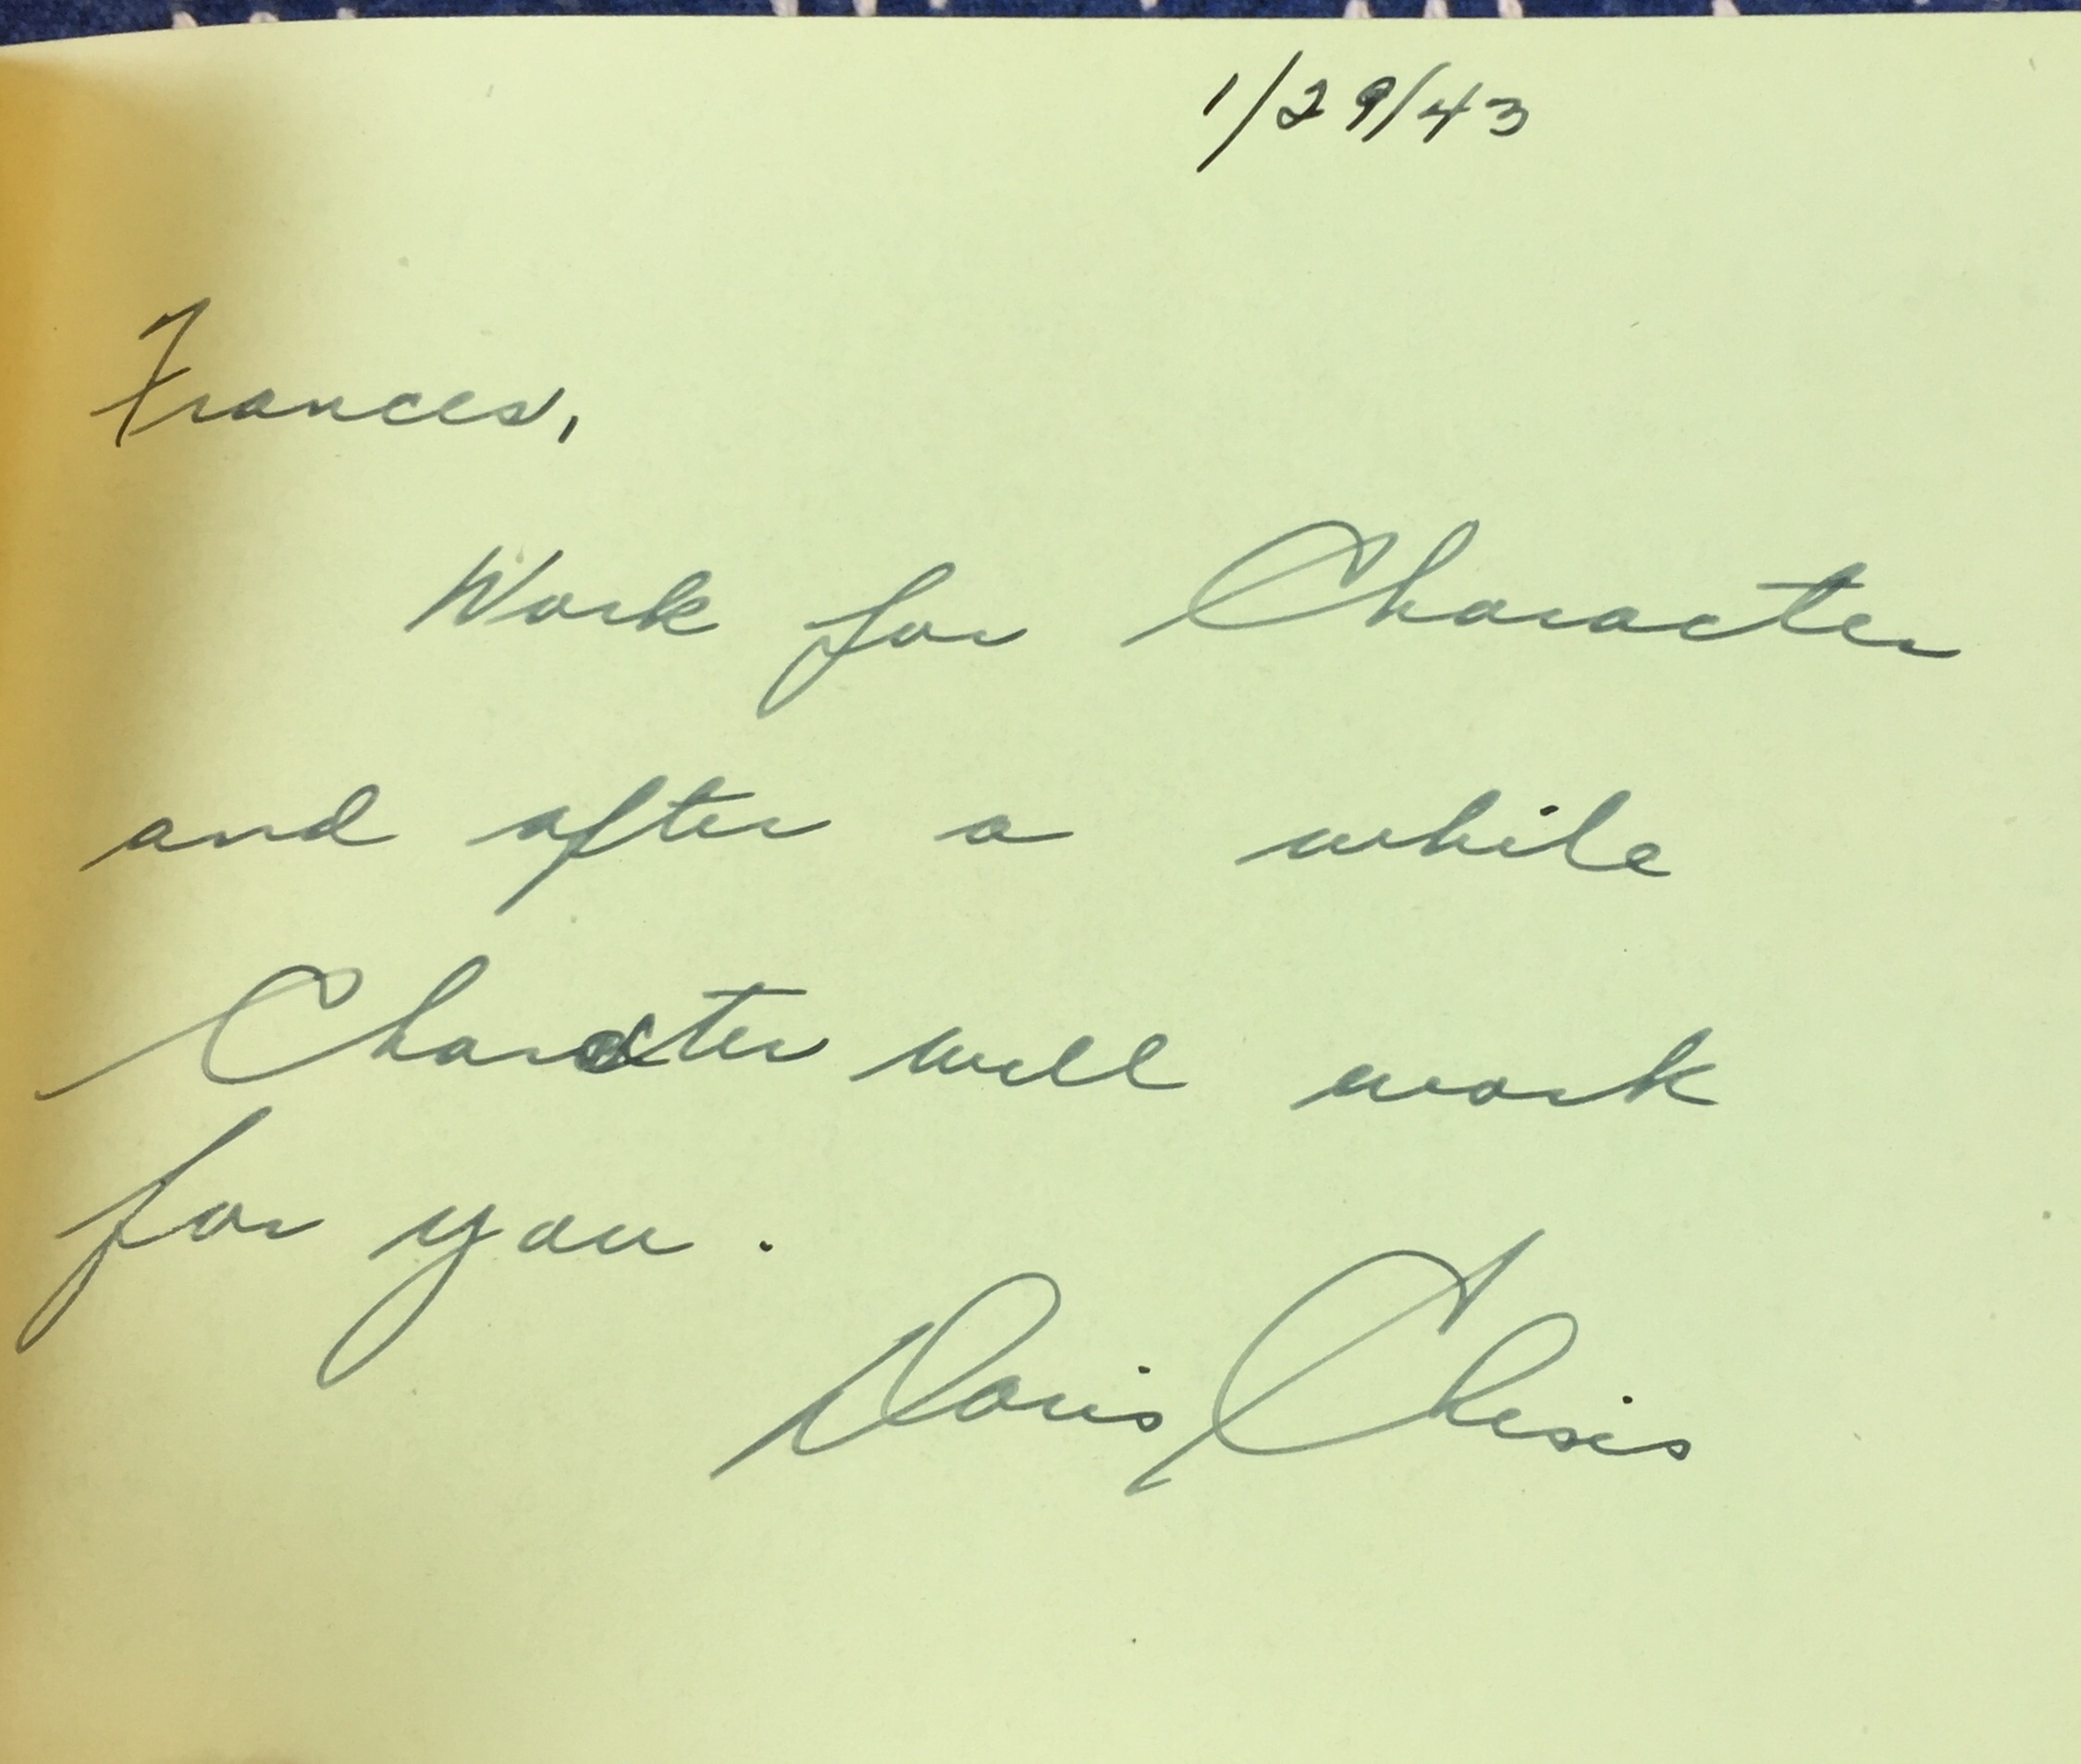 1/29/43
Frances,
Work for Character
and after a while
Character will work
for you.
Doris Chesis